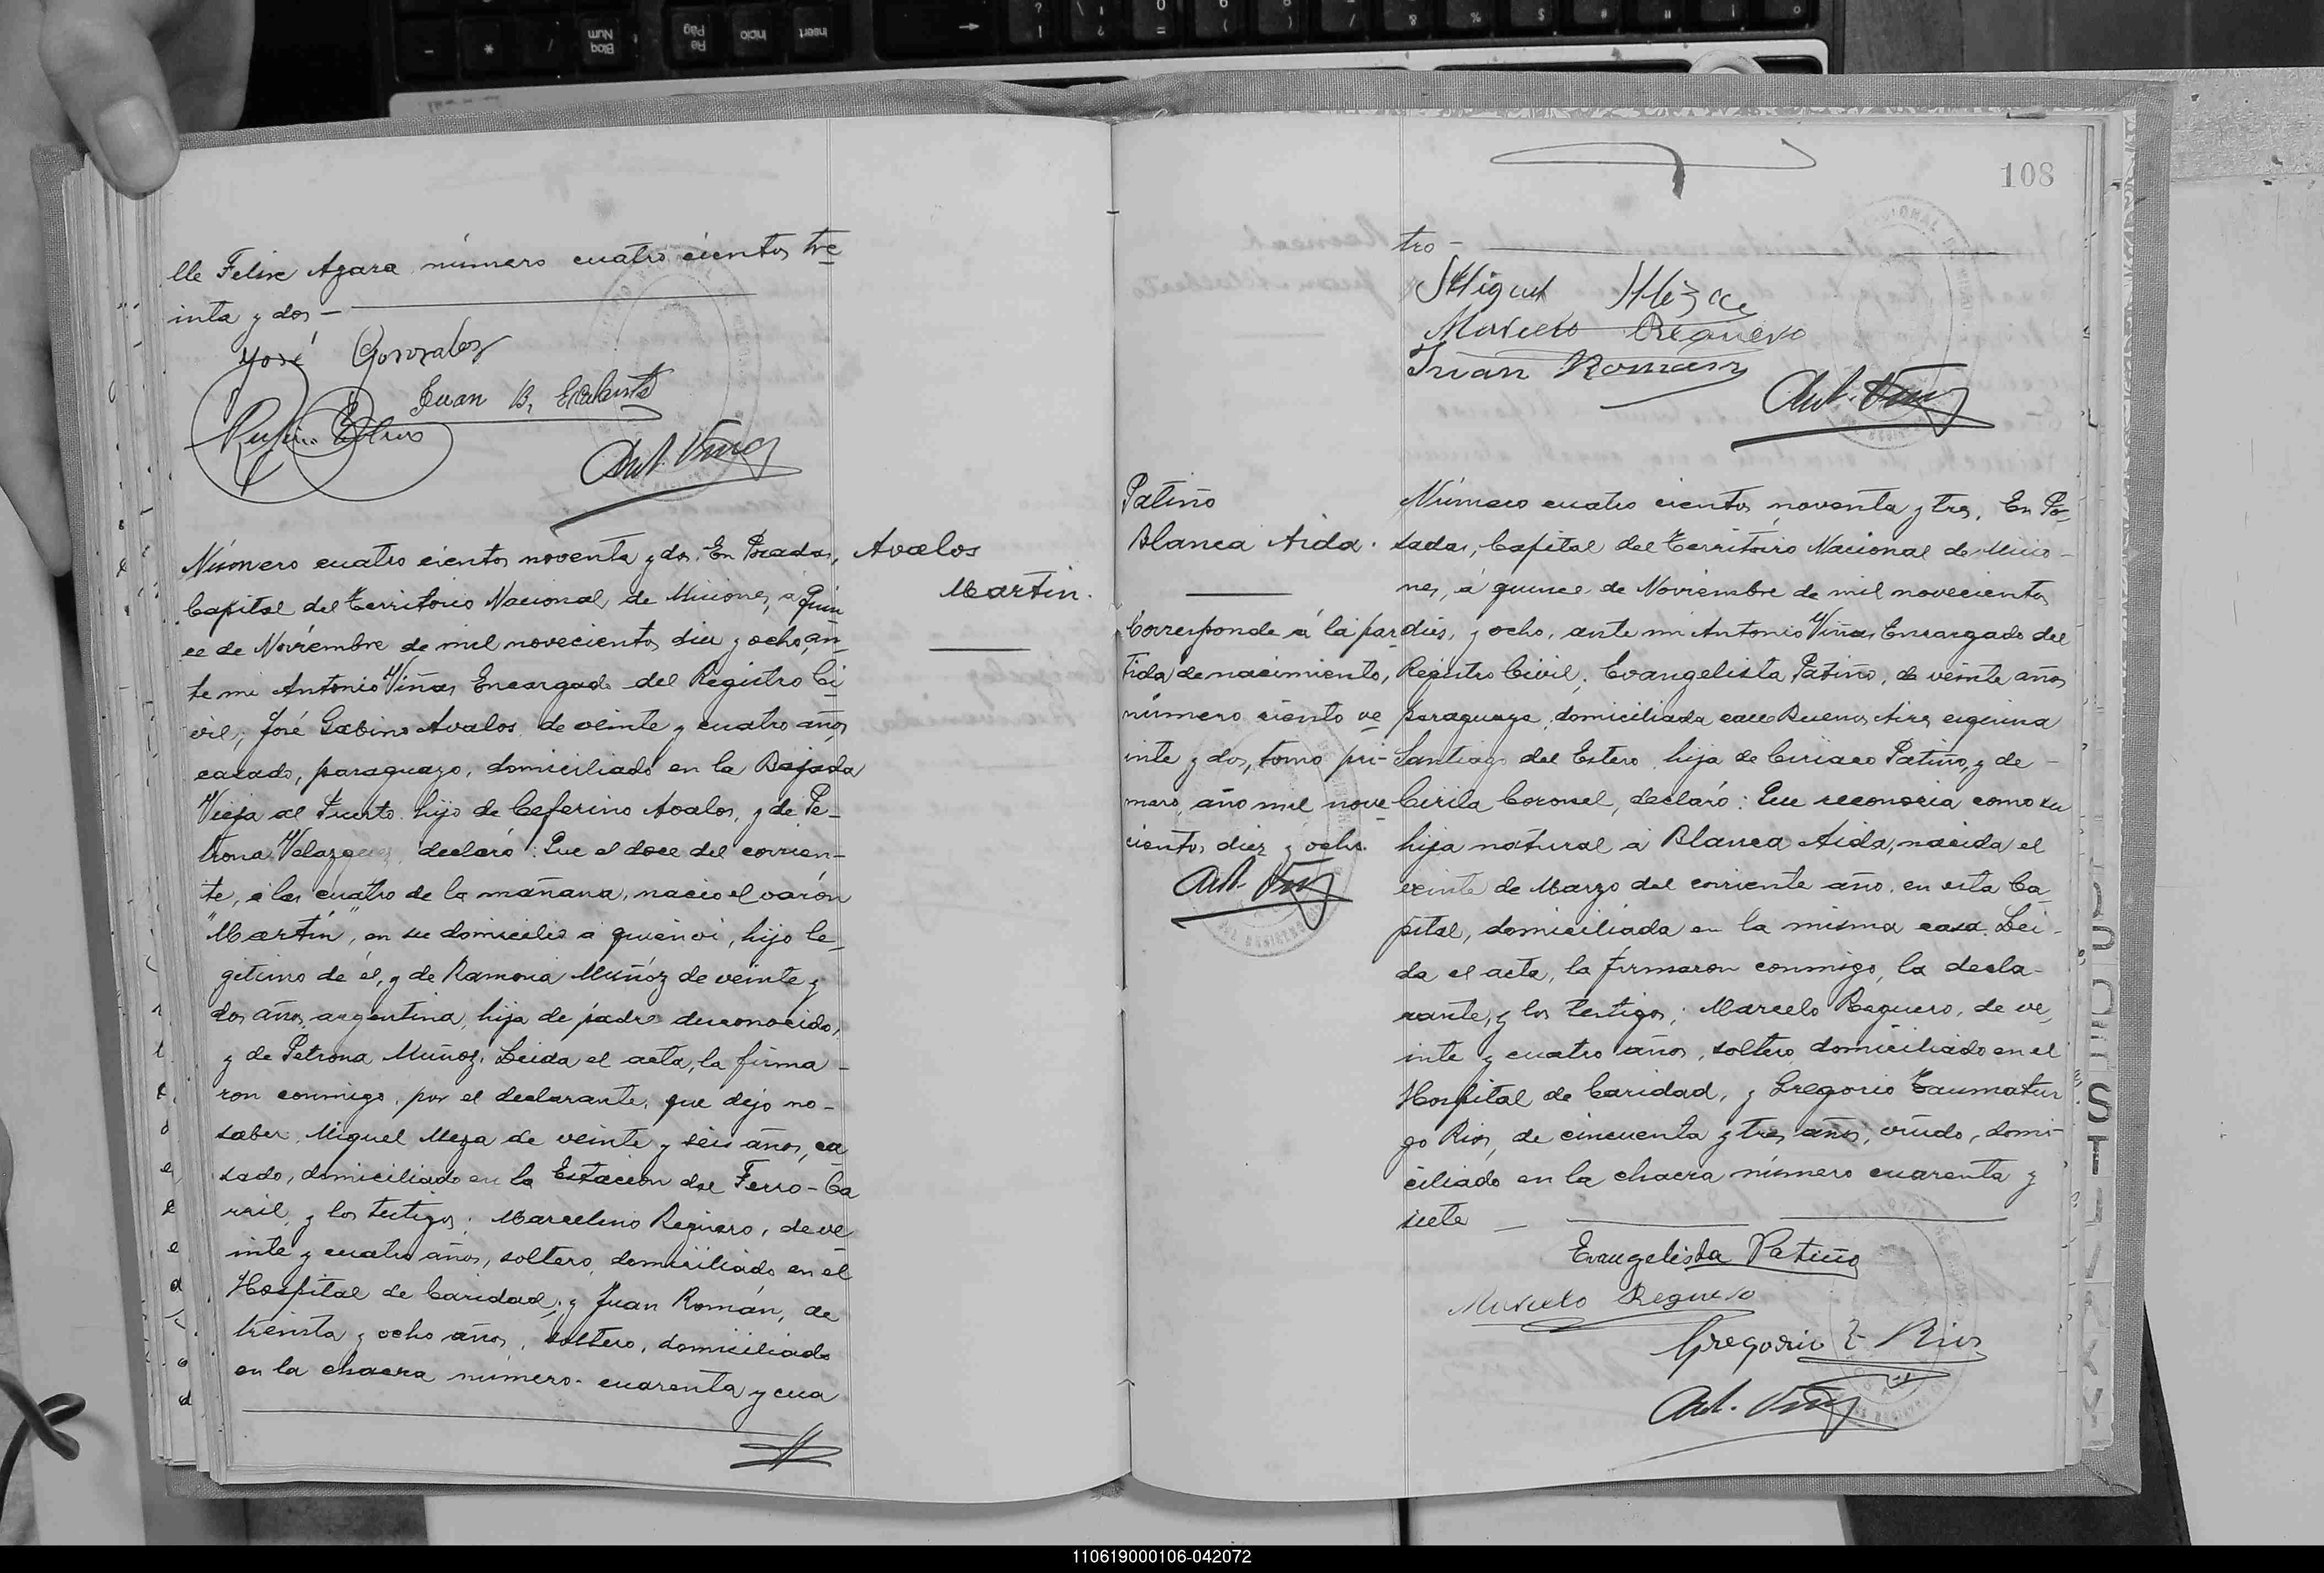 lle Felix Azara número cuatro cientos tre
inta y dos —
José Gonzalez
Juan B.
Ant. Viñas
Número cuatro cientos noventa y dos. En Posadas,
Capital del Territorio Nacional de Misiones, a quin
ce de Noviembre de mil novecientos diez y ocho, an
te mi Antonio Viñas Encargado del Registro Ci
vil, José Gabino Avalos de veinte y cuatro años
casado, paraguayo, domiciliado en la Bajada
Vieja al Puerto hijo de Ceferino Avalos, y de Pe-
trona Velazquez, declaró: Que el doce del corrien-
te, a las cuatro de la mañana, nació el varón
"Martín", en su domicilio a quien vi, hijo le-
gitimo de él, y de Ramona Muñóz de veinte y
dos años, argentina, hija de padre desconocido,
y de Petrona Muñoz. Leida el acta, la firma-
ron conmigo, por el declarante, que dijo no-
saber, Miguel Meza de veinte y seis años, ca
sado, domiciliado en la Estación del Ferro-Ca
rril, y los testigos: Marcelino Reguero, de ve
inte y cuatro años, soltero, domiciliado en el
Hospital de Caridad; y Juan Román, de
treinta y ocho años, soltero, domiciliado
en la chacra número cuarenta y cua
Avalos
Martín.
108
tro —
Miguel Meza
Marcelo Reguero
Juan Roman
Ant. Viñas
Patiño
Blanca Aida.
Corresponde á la par
tida de nacimiento,
número ciento ve
inte y dos, tomo pri-
mero, año mil nove
cientos diez y ocho.
Ant. Viñas
Número cuatro cientos noventa y tres. En Po-
sadas, Capital del Territorio Nacional de Misio-
nes, á quince de Noviembre de mil novecientos
diez, y ocho, ante mi Antonio Viñas Encargado del
Registro Civil; Evangelista Patiño, de veinte años
paraguaya, domiciliada calle Buenos Aires esquina
Santiago del Estero hija de Ciriaco Patiño, y de -
Cirila Coronel, declaró: Que reconocia como su
hija natural a Blanca Aida, nacida el
veinte de Marzo del corriente año, en esta Ca-
pital, domiciliada en la misma casa. Lei-
da el acta, la firmaron conmigo, la decla-
rante, y los testigos; Marcelo Reguero, de ve
inte y cuatro años, soltero domiciliado en el
Hospital de Caridad, y Gregorio Taumatur
go Rios, de cincuenta y tres años, viudo, domi-
ciliado en la chacra número cuarenta y
siete —
Evangelista Patiño
Marcelo Reguero
Gregorio T. Rios
Ant. Viñas
110619000106-042072